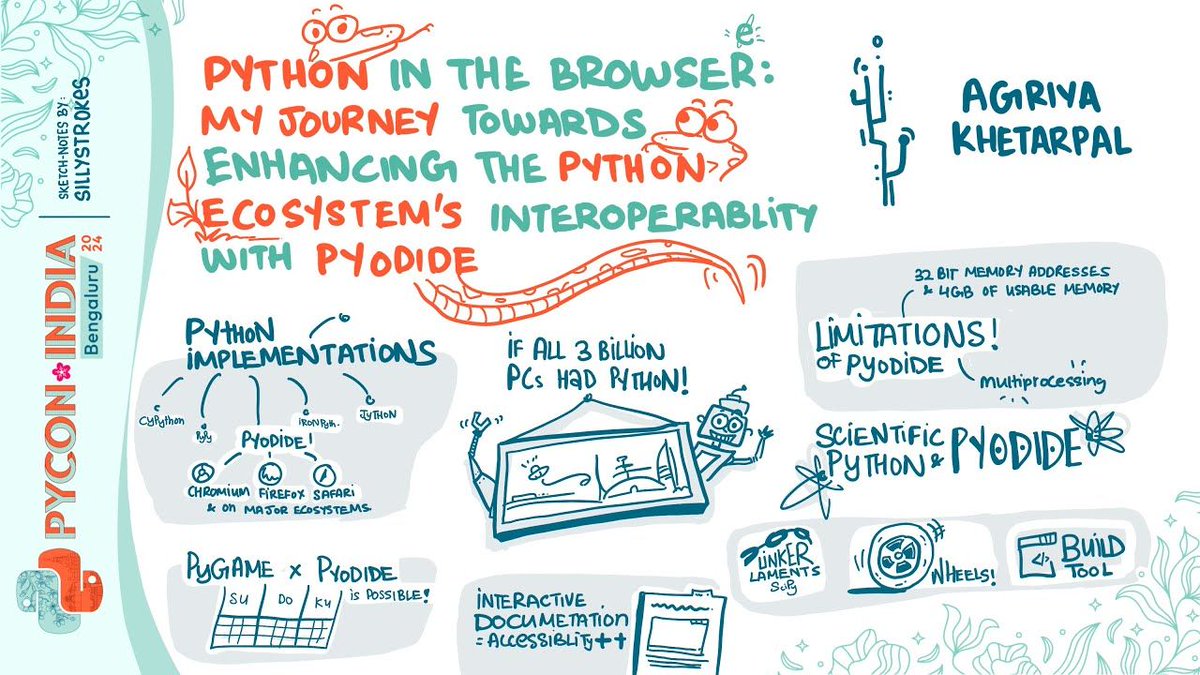 SKETCH-NOTES BY:
SILLYSTROKES
PYCON INDIA
2024
Bengaluru
PYTHON IN THE BROWSER:
MY JOURNEY TOWARDS
ENHANCING THE PYTHON
ECOSYSTEM'S INTEROPERABLITY
WITH PYODIDE
e
AGRIYA
KHETARPAL
PYTHON
IMPLEMENTATIONS
CYPython
PyPy
PYODIDE!
IRONPyth.
JYTHON
CHROMIUM FIREFOX SAFARI
& ON MAJOR ECOSYSTEMS
IF ALL 3 BILLION
PCs HAD PYTHON!
32 BIT MEMORY ADDRESSES
& 4GB OF USABLE MEMORY
LIMITATIONS!
OF PYODIDE
multiprocessing
SCIENTIFIC
PYTHON & PYODIDE
LINKER
LAMENTS
SciPy
WHEELS!
</> BUILD
TOOL
PyGAME x PYODIDE
IS POSSIBLE!
SU DO KU
INTERACTIVE
DOCUMETATION
= ACCESSIBLITY ++